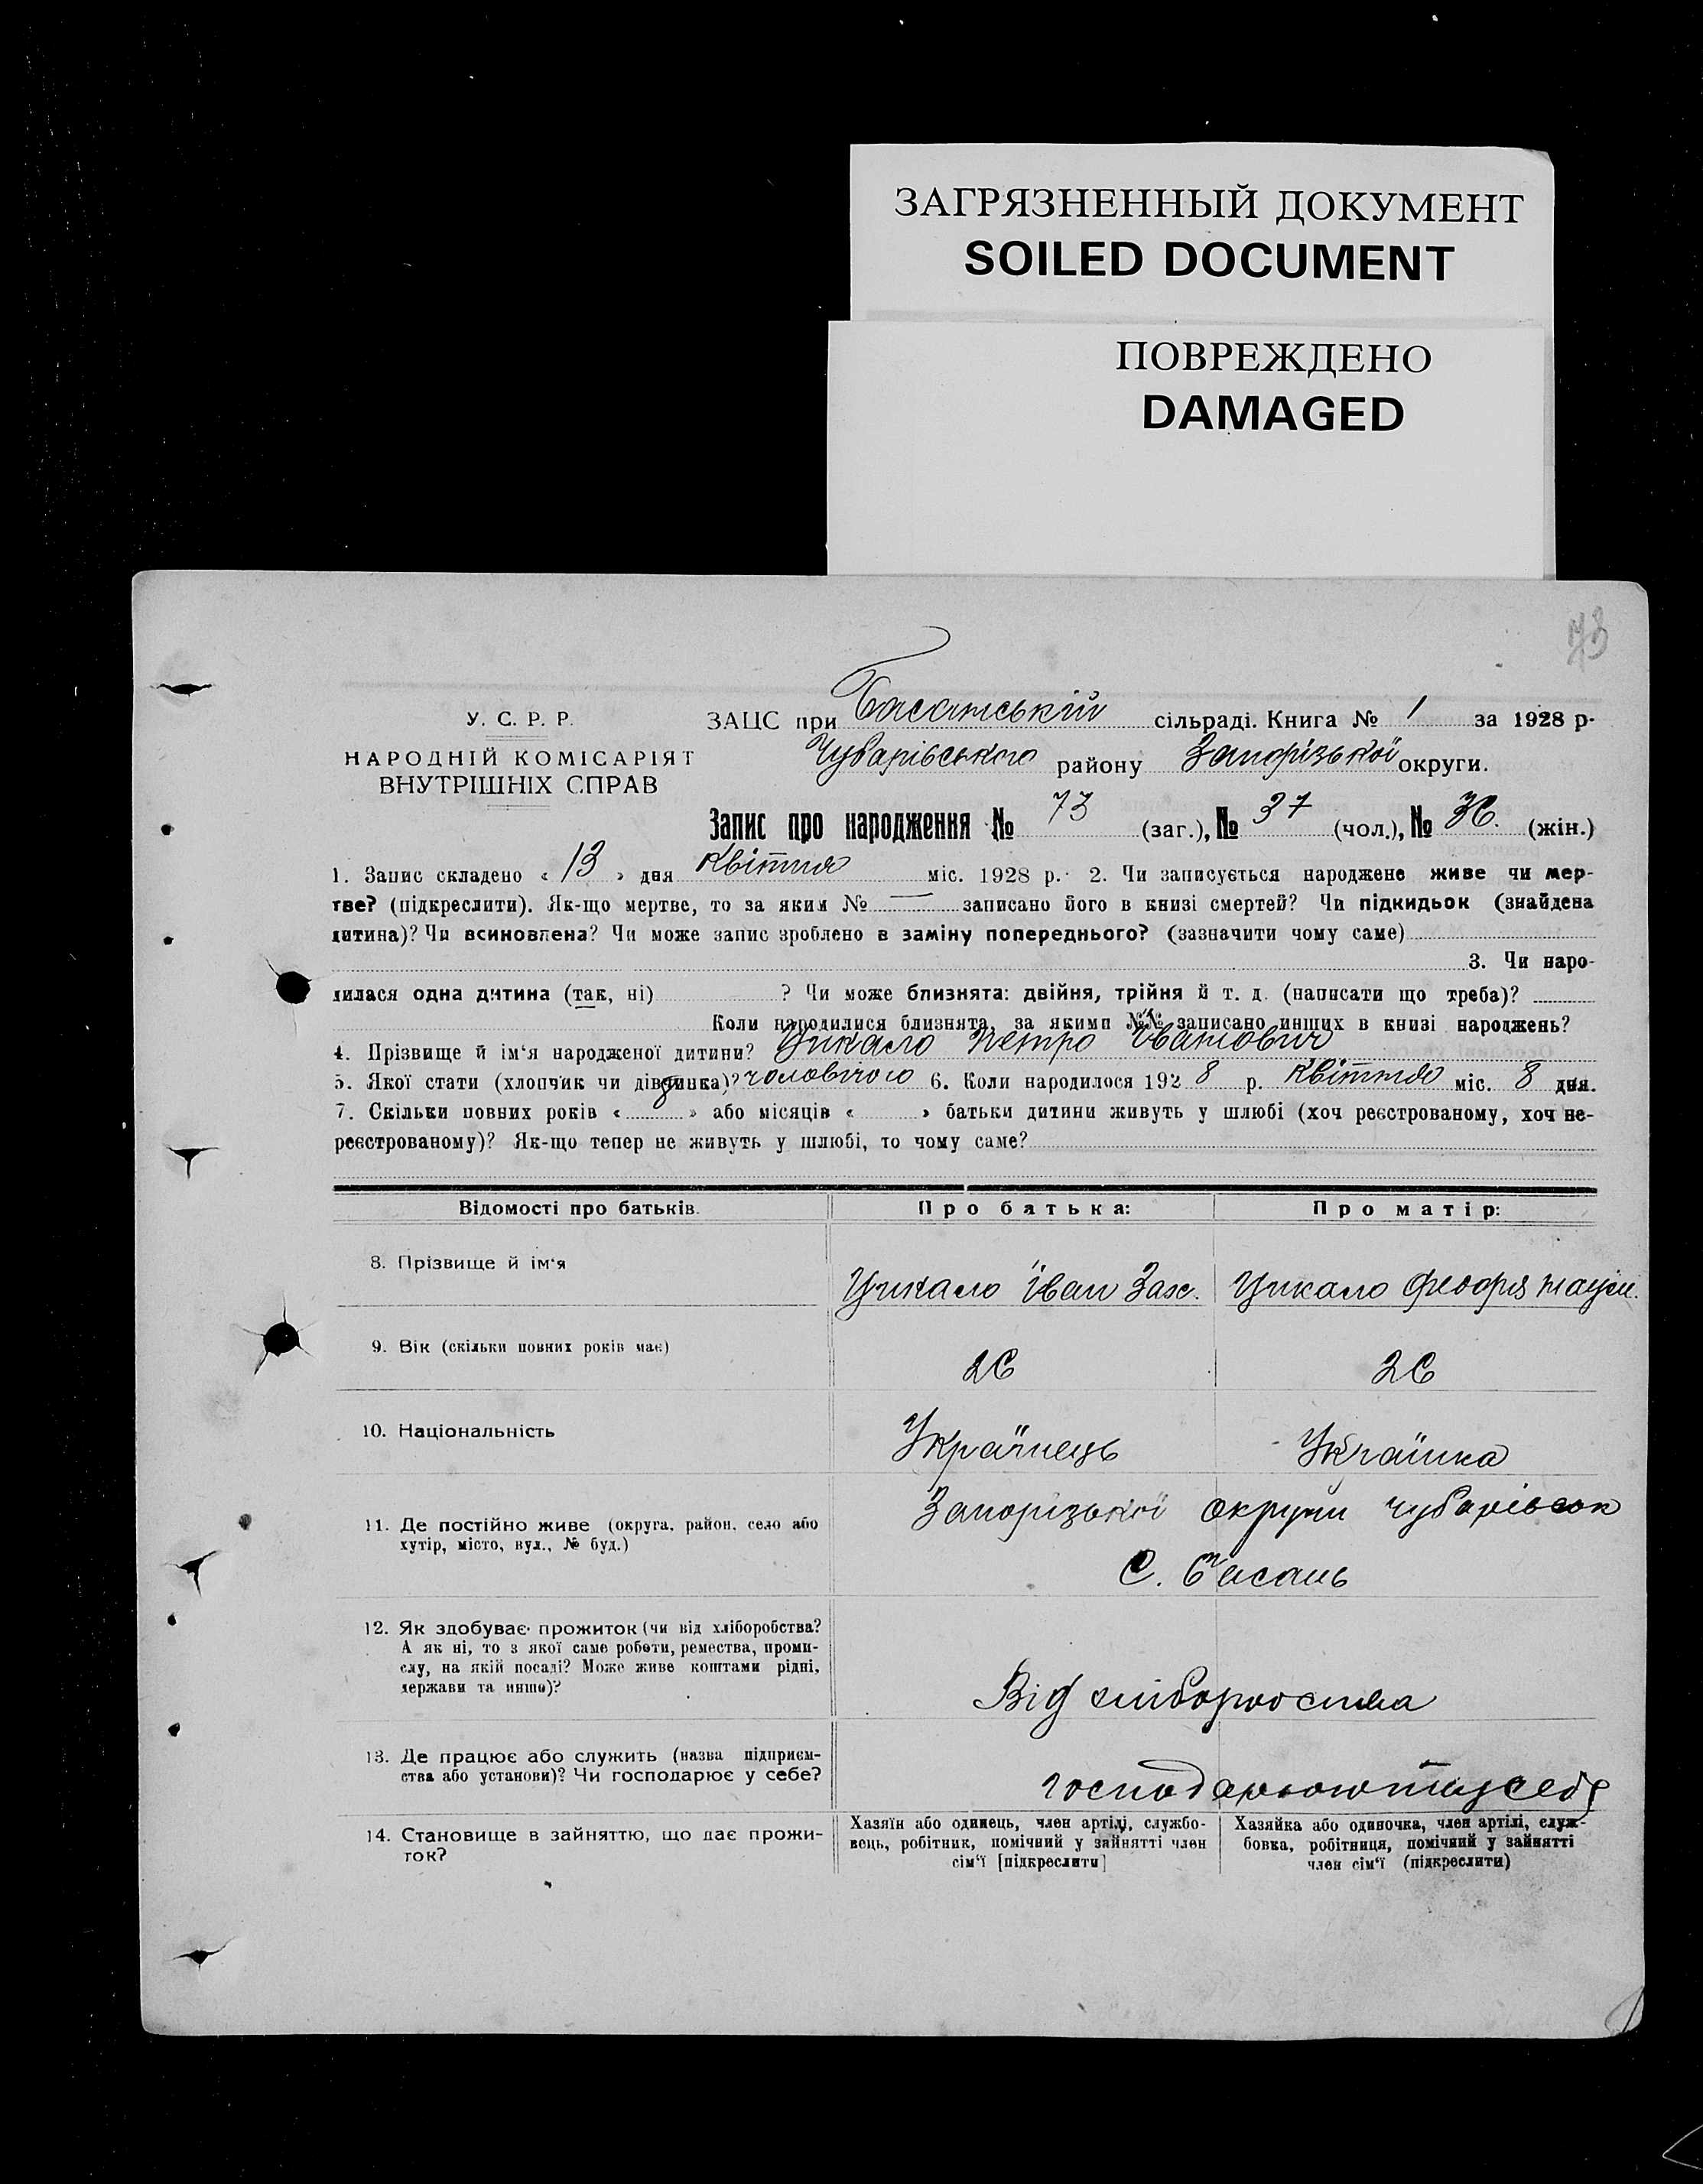 ЗАГРЯЗНЕННЫЙ ДОКУМЕНТ
SOILED DOCUMENT
ПОВРЕЖДЕНО
DAMAGED
73
У. С. Р. Р.
НАРОДНІЙ КОМІСАРІЯТ
ВНУТРІШНІХ СПРАВ
ЗАЦС при Басанській сільраді. Книга № 1 за 1928 р.
Чубарівського району Запорізької округи.
Запис про народження № 73 (заг.), № 37 (чол.), № 36. (жін.)
1. Запис складено « 13 » дня Квітня міс. 1928 р. 2. Чи записується народжене живе чи мер-
тве? (підкреслити). Як-що мертве, то за яким № — записано його в книзі смертей? Чи підкидьок (знайдена
дитина)? Чи всиновлена? Чи може запис зроблено в заміну попереднього? (зазначити чому саме)
3. Чи наро-
дилася одна дитина (так, ні) ? Чи може близнята: двійня, трійня й т. д. (написати що треба)?
Коли народилися близнята, за якими №№ записано инших в книзі народжень?
4. Прізвище й ім'я народженої дитини? Цикало Петро Іванович
5. Якої стати (хлопчик чи дівчинка)? чоловічого 6. Коли народилося 192 8 р. Квітня міс. 8 дня.
7. Скільки повних років « » або місяців « » батьки дитини живуть у шлюбі (хоч реєстрованому, хоч не-
реєстрованому)? Як-що тепер не живуть у шлюбі, то чому саме?
Відомості про батьків. Про батька: Про матір:
8. Прізвище й ім'я
Цикало Іван Зах. Цикало Феодря
9. Вік (скільки повних років має)
26 26
10. Національність
Українець Українка
11. Де постійно живе (округа, район, село або
хутір, місто, вул., № буд.)
Запорізької округи Чубарівськ
С. Басань
12. Як здобуває прожиток (чи від хліборобства?
А як ні, то з якої саме роботи, ремества, проми-
слу, на якій посаді? Може живе коштами рідні,
держави та инше)?
Від хліборобства
13. Де працює або служить (назва підприєм-
ства або установи)? Чи господарює у себе?
господарюють у себе
14. Становище в зайняттю, що дає прожи-
ток?
Хазяїн або одинець, член артілі, службо-
вець, робітник, помічний у зайнятті член
сім'ї [підкреслити]
Хазяйка або одиночка, член артілі, служ-
бовка, робітниця, помічний у зайнятті
член сім'ї (підкреслити)